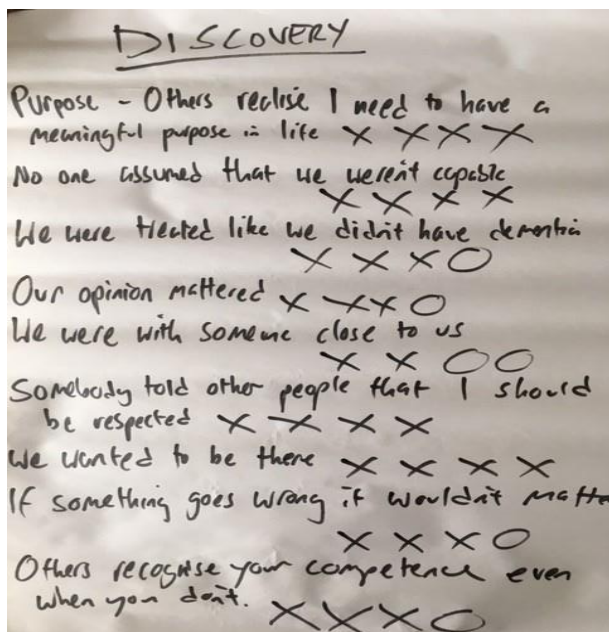 DISCOVERY
Purpose - Others realise I need to have a
meaningful purpose in life X X X X
No one assumed that we weren't capable
X X X X
We were treated like we didn't have dementia
X X X O
Our opinion mattered X X X O
We were with someone close to us
X X O O
Somebody told other people that I should
be respected X X X X
We wanted to be there X X X X
If something goes wrong it wouldn't matte
X X X O
Others recognise your competence even
when you don't. X X X O